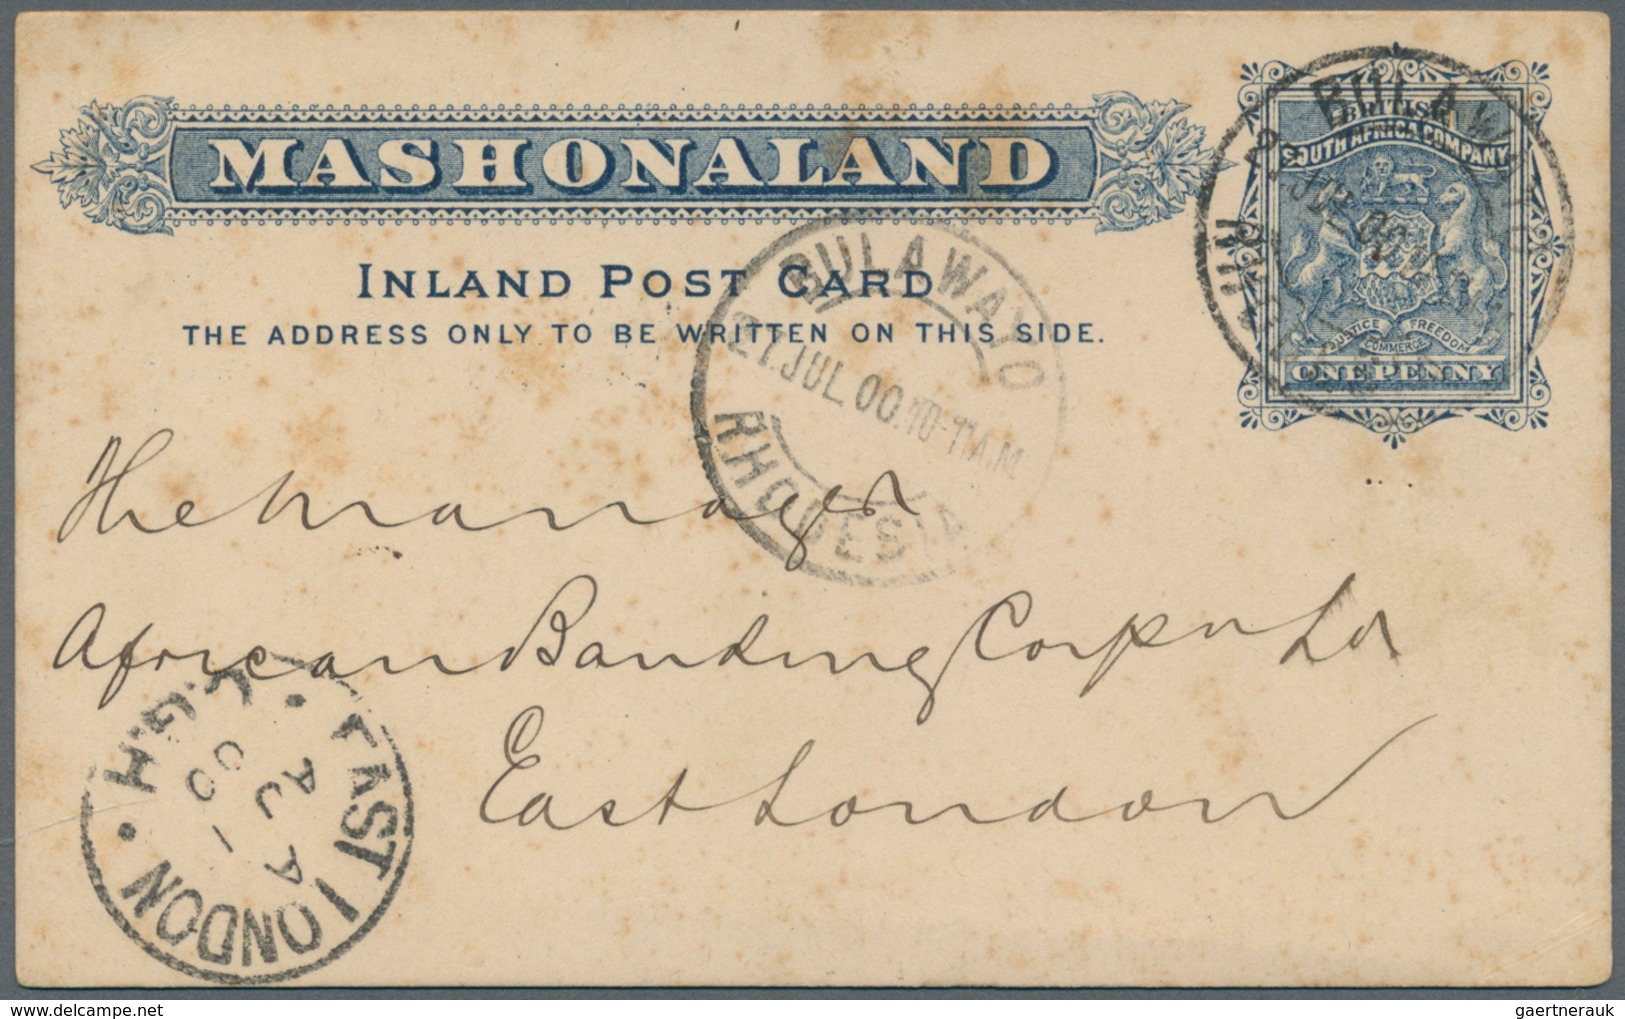 MASHONALAND
INLAND POST CARD
THE ADDRESS ONLY TO BE WRITTEN ON THIS SIDE.
BRITISH
SOUTH AFRICA COMPANY
JUSTICE FREEDOM
COMMERCE
ONE PENNY
BULAWAYO
BULAWAYO
27.JUL.00.10-11A.M
RHODESIA
The Manager
African Banking Corpn Ld
East London
EAST LONDON
G.H
AU 1
00
A
gaertnerauk